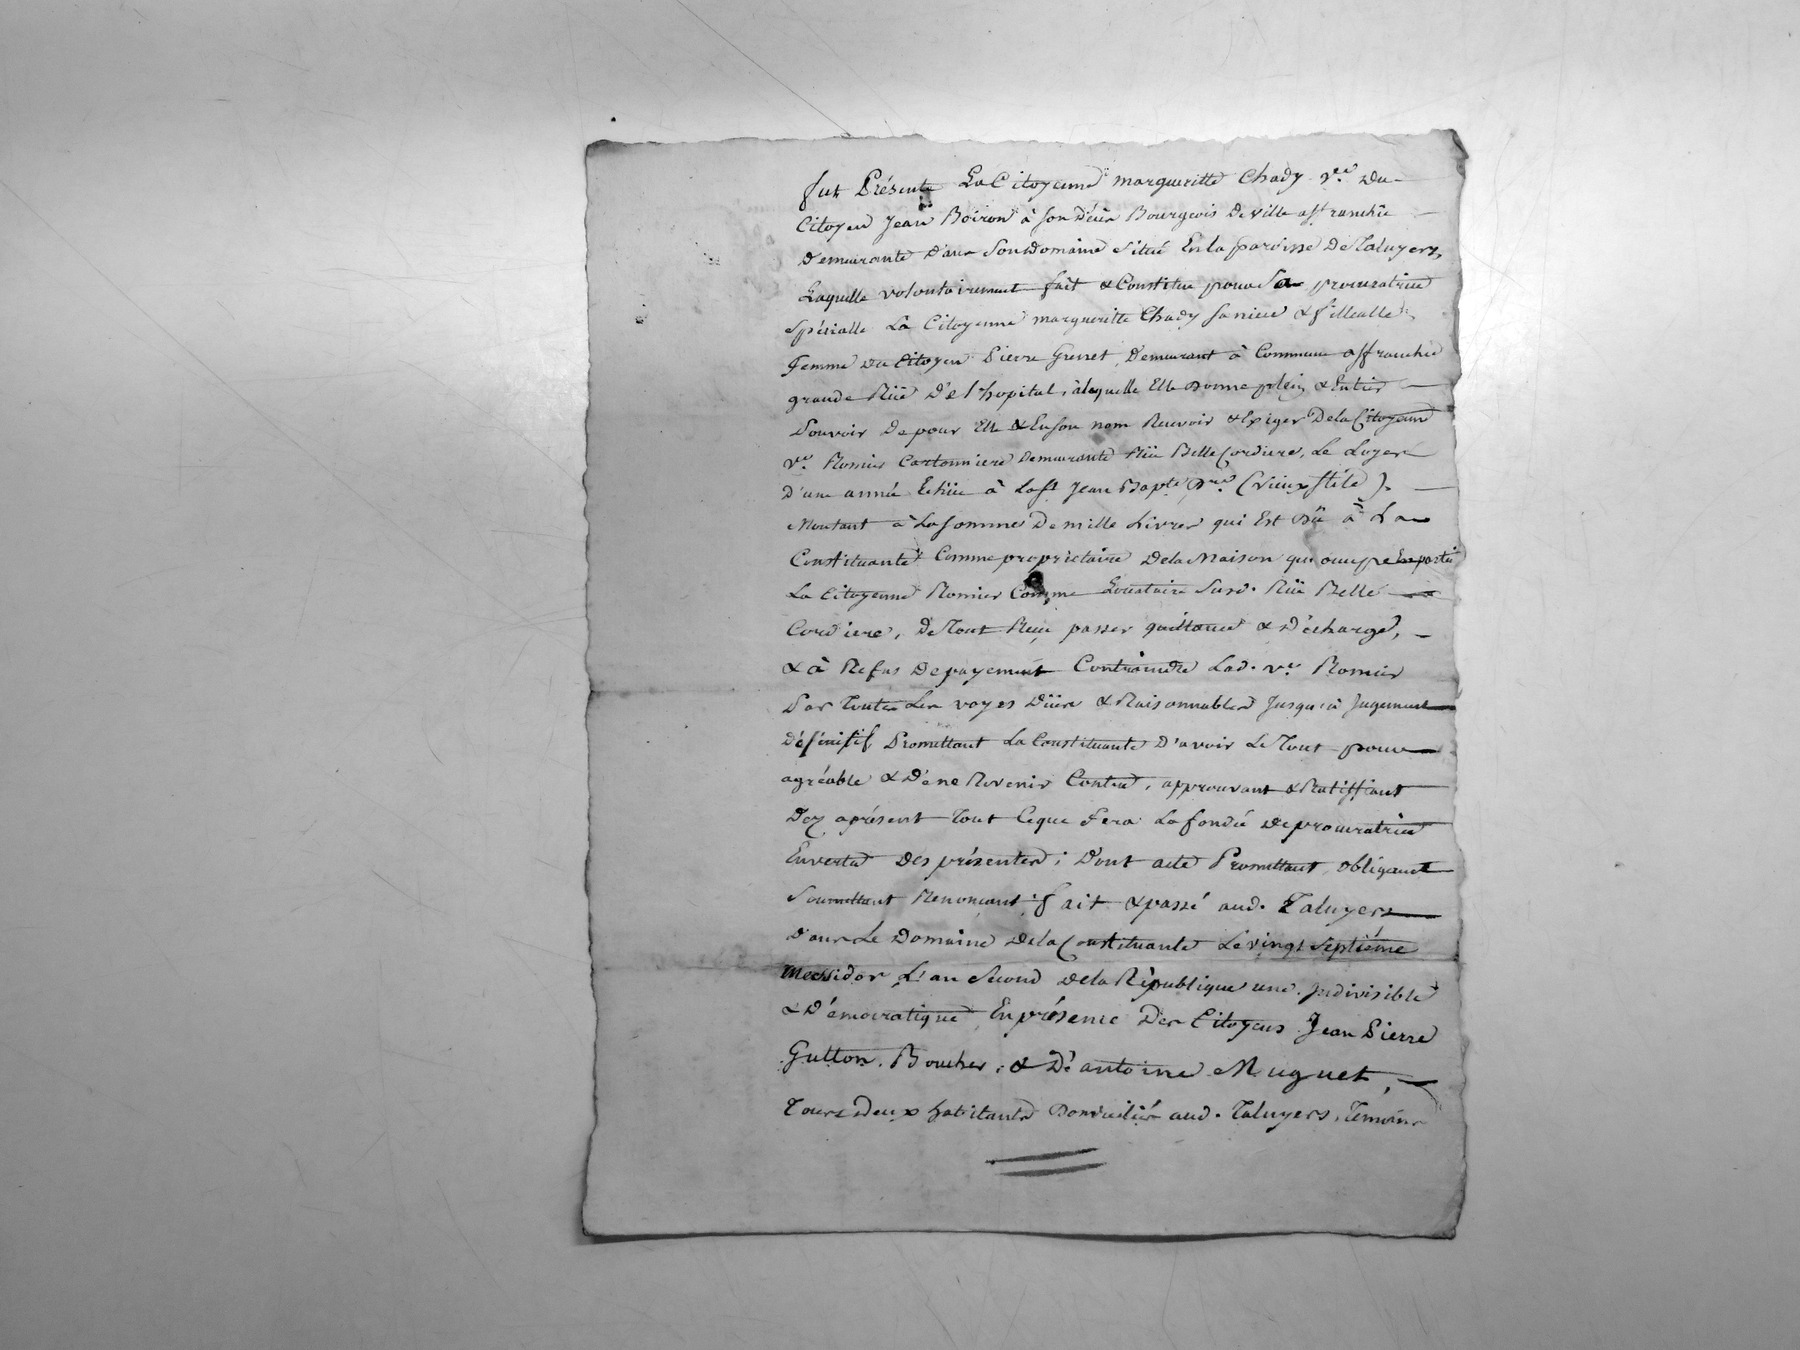 fut Présente La Citoyenne margueritte Chady v.ve Du
Citoyen Jean Boiron à son décès Bourgeois De ville affranchie
Demeurante dans son Domaine situé En la paroisse De Taluyers,
Laquelle volontairement fait & Constitue pour Sa procuratrice
spécialle La Citoyenne margueritte Chady sa niece & filleulle
femme Du Citoyen Pierre Grenet, Demeurant à Commune affranchie
grande Rüe De l'hopital, à laquelle Elle Donne plein & Entier
Pouvoir De pour Elle & En son nom Recevoir & Exiger De la Citoyenne
v.e Romier Cartonniere Demeurante Rüe Belle Cordiere, Le Loyer
D'une année Echüe à la St Jean Bapte (vieux stile).
Montant à La somme De mille Livres qui Est Dü à La
Constituante Comme propriétaire De la Maison qu'occupe En partie
La Citoyenne Romier Comme Locataire Susd. Rüe Belle
Cordiere, De Tout Reçu passer quittance & Décharge,
& à Refus De payement Contraindre Lad. v.e Romier
Par Toutes Les voyes Düës & Raisonnables Jusqu'à Jugement
Définitif, Promettant La Constituante D'avoir Le Tout pour
agréable & De ne Revenir Contre, approuvant & Ratiffiant
Dez aprésent Tout Ce que fera La fondée De procuratrice
En vertu Des présentes; Dont acte Promettant, obligeant
Soumettant Renonçant, fait & passé aud. Taluyers
Dans Le Domaine De la Constituante Le vingt Septiéme
Messidor L'an Second De la République une, Indivisible
& Démocratique, En présence Des Citoyens Jean Pierre
Gutton, Boucher, & D'antoine Muguet,
Tours Deux habitants Domiciliés aud. Taluyers, Témoins